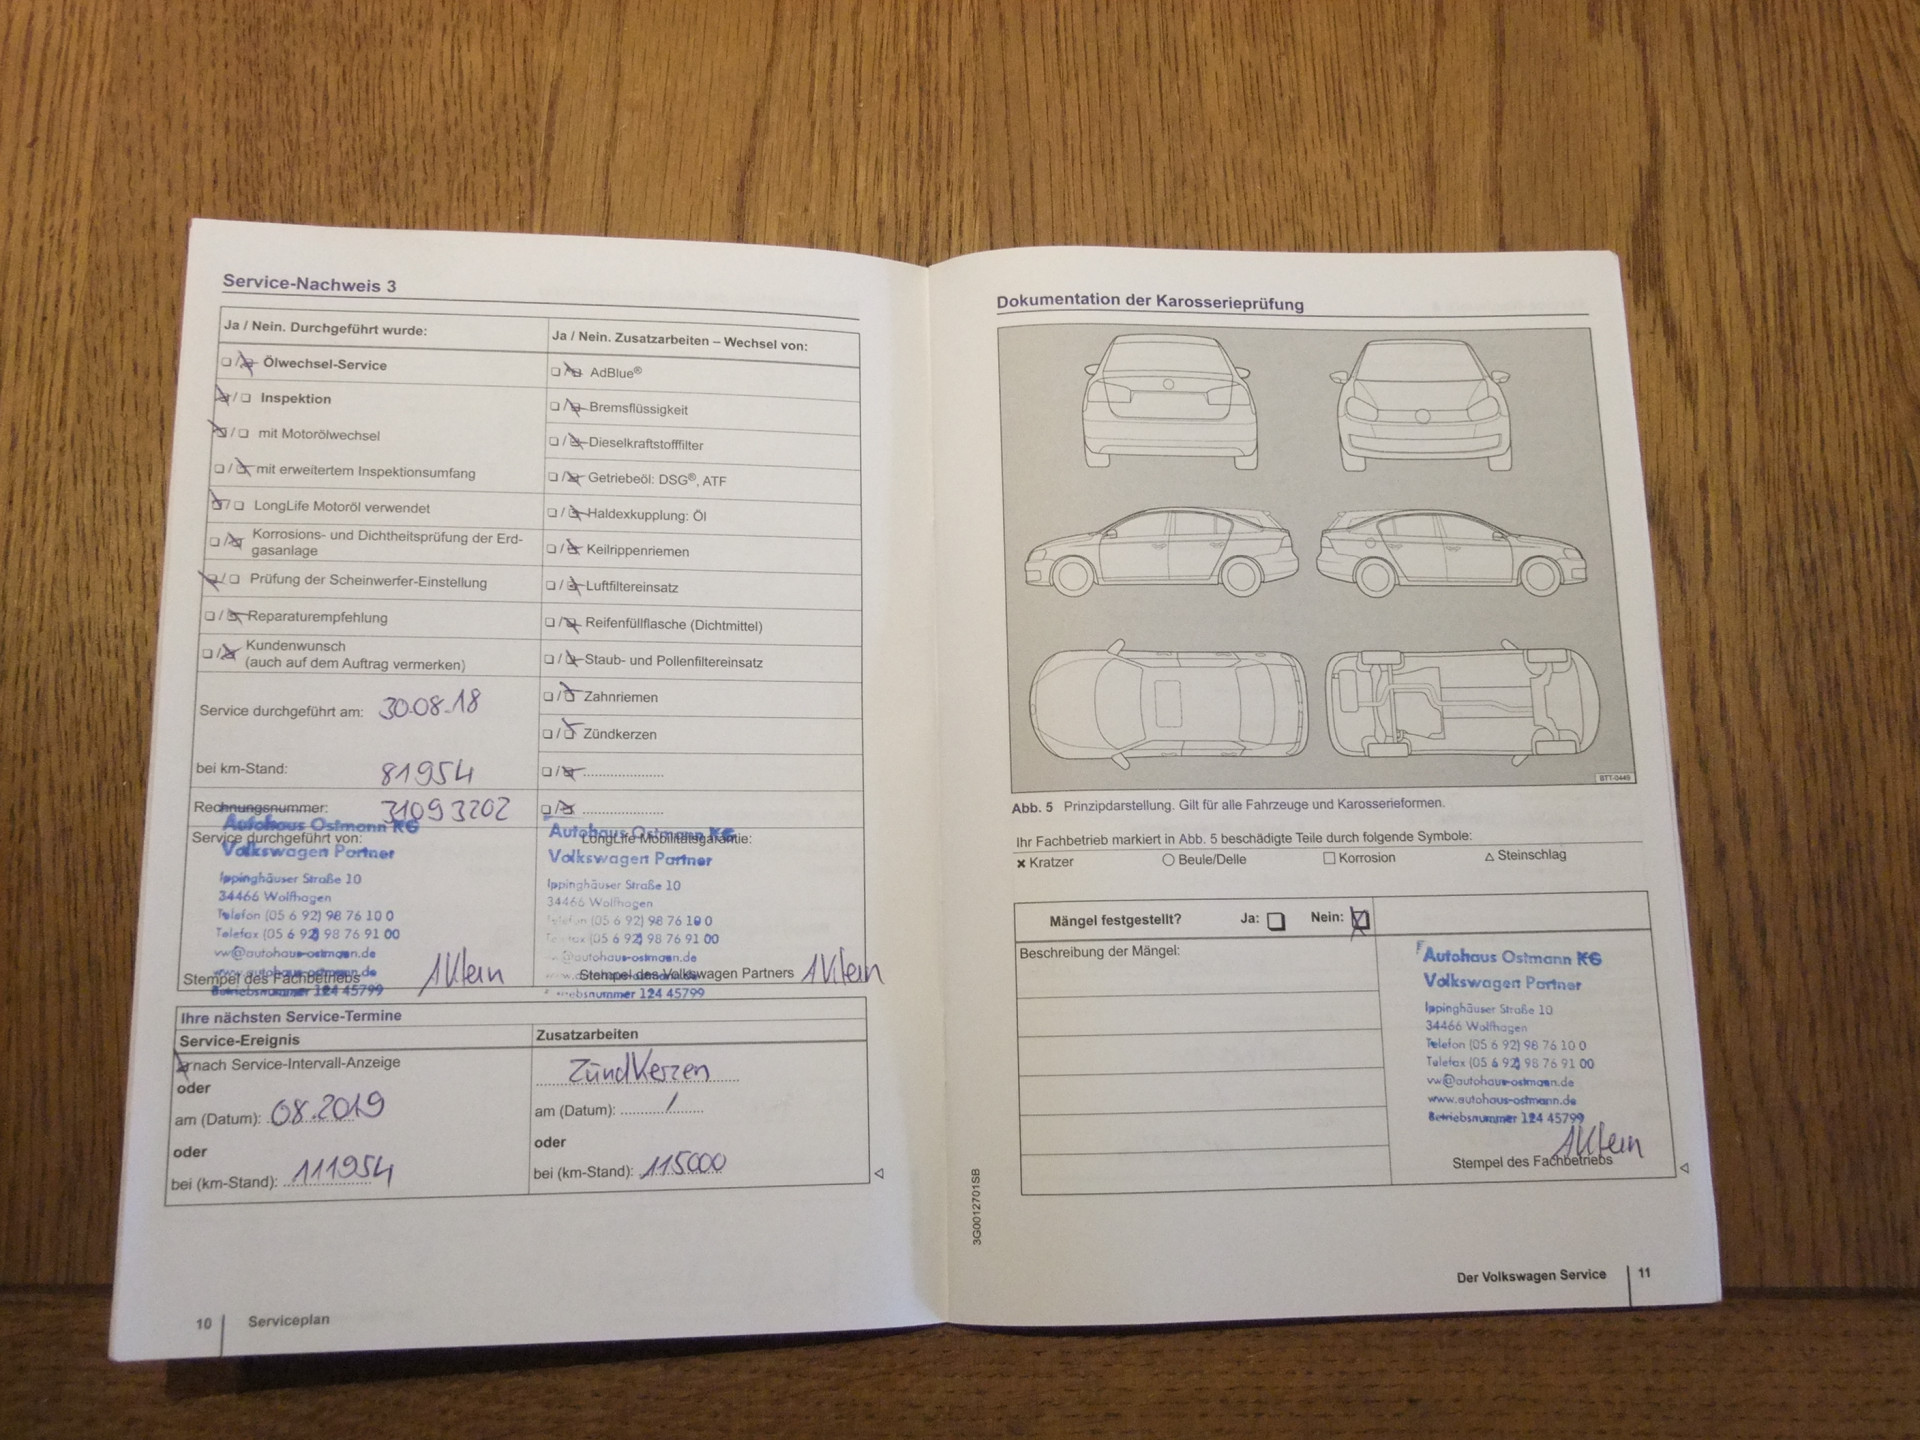 Service-Nachweis 3
Ja / Nein. Durchgeführt wurde:
Ölwechsel-Service
Inspektion
mit Motorölwechsel
mit erweitertem Inspektionsumfang
LongLife Motoröl verwendet
Korrosions- und Dichtheitsprüfung der Erd-
gasanlage
Prüfung der Scheinwerfer-Einstellung
Reparaturempfehlung
Kundenwunsch
(auch auf dem Auftrag vermerken)
Service durchgeführt am: 30.08.18
bei km-Stand: 81954
Rechnungsnummer: 31093202
Service durchgeführt von:
Autohaus Ostmann KG
Volkswagen Partner
Ippinghäuser Straße 10
34466 Wolfhagen
Telefon (05 6 92) 98 76 10 0
Telefax (05 6 92) 98 76 91 00
vw@autohaus-ostmann.de
www.autohaus-ostmann.de
Betriebsnummer 124 45799
Stempel des Fachbetriebs
AKlein
Ja / Nein. Zusatzarbeiten – Wechsel von:
AdBlue®
Bremsflüssigkeit
Dieselkraftstofffilter
Getriebeöl: DSG®, ATF
Haldexkupplung: Öl
Keilrippenriemen
Luftfiltereinsatz
Reifenfüllflasche (Dichtmittel)
Staub- und Pollenfiltereinsatz
Zahnriemen
Zündkerzen
LongLife Mobilitätsgarantie:
Autohaus Ostmann KG
Volkswagen Partner
Ippinghäuser Straße 10
34466 Wolfhagen
Telefon (05 6 92) 98 76 10 0
Telefax (05 6 92) 98 76 91 00
@autohaus-ostmann.de
Stempel des Volkswagen Partners
AKlein
Betriebsnummer 124 45799
Ihre nächsten Service-Termine
Service-Ereignis
nach Service-Intervall-Anzeige
oder
am (Datum): 08.2019
oder
bei (km-Stand): 111954
Zusatzarbeiten
Zündkerzen
am (Datum): /
oder
bei (km-Stand): 115000
10 Serviceplan
Dokumentation der Karosserieprüfung
BTT-0449
Abb. 5 Prinzipdarstellung. Gilt für alle Fahrzeuge und Karosserieformen.
Ihr Fachbetrieb markiert in Abb. 5 beschädigte Teile durch folgende Symbole:
Kratzer Beule/Delle Korrosion Steinschlag
Mängel festgestellt? Ja: Nein:
Beschreibung der Mängel:
Autohaus Ostmann KG
Volkswagen Partner
Ippinghäuser Straße 10
34466 Wolfhagen
Telefon (05 6 92) 98 76 10 0
Telefax (05 6 92) 98 76 91 00
vw@autohaus-ostmann.de
www.autohaus-ostmann.de
Betriebsnummer 124 45799
AKlein
Stempel des Fachbetriebs
3G0012701SB
Der Volkswagen Service 11